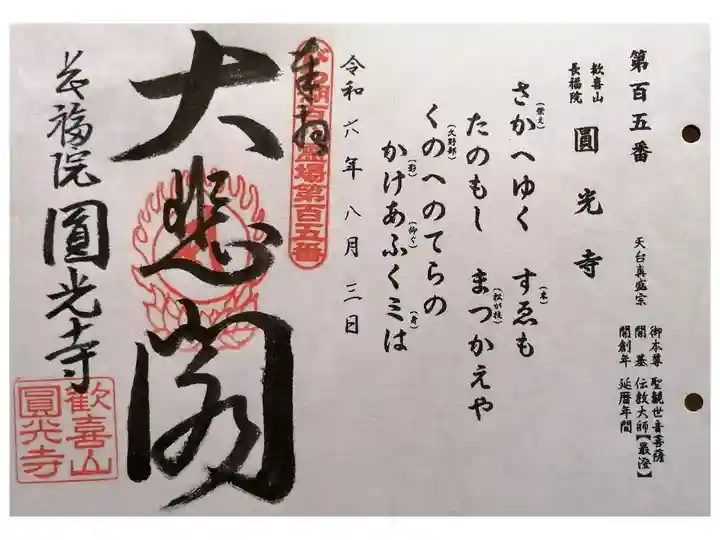 第百五番
歓喜山
長福院
圓光寺
天台真盛宗
御本尊 聖観世音菩薩
開基 伝教大師【最澄】
開創年 延暦年間
さかへゆく すゑも
(栄え) (末)
たのもし まつかえや
(松が枝)
くのへのてらの
(久野部)
かけあふくミは
(影) (仰ぐ) (身)
令和六年八月三日
奉拝
びわ湖百八霊場第百五番
大悲閣
長福院 圓光寺
歓喜山
圓光寺